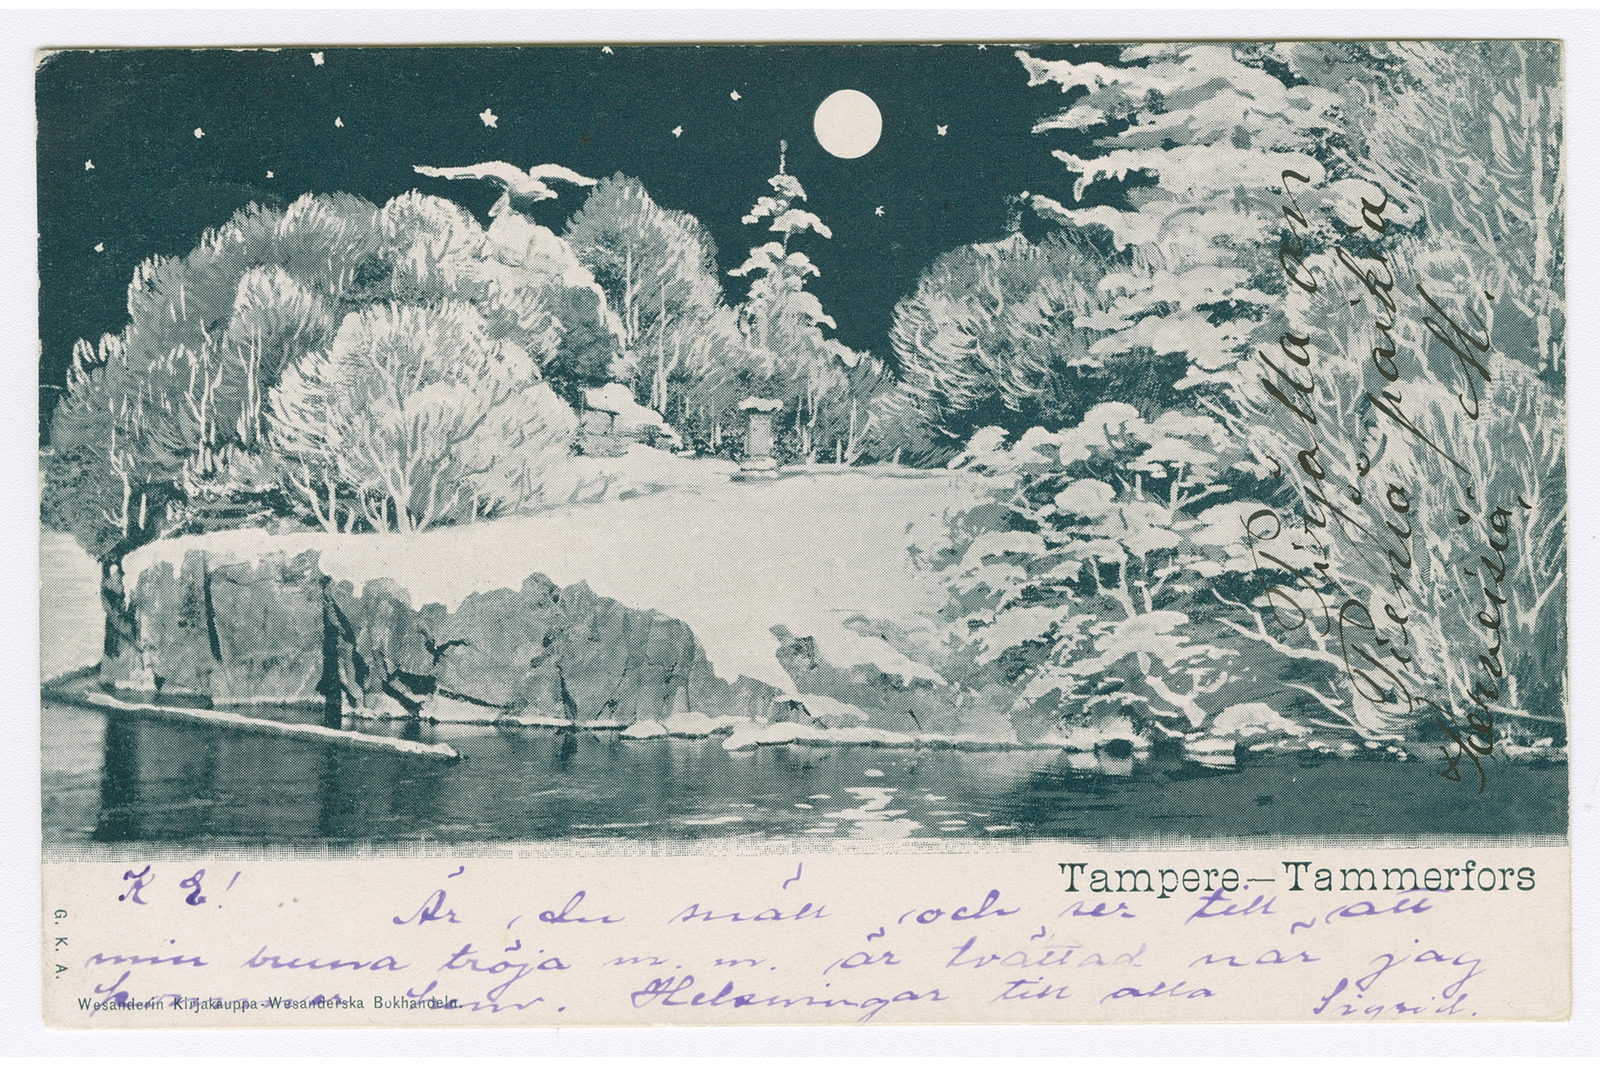 Tampere—Tammerfors
K E!
Är du snäll och ser till att
min bruna tröja m. m. är tvättad när jag
kommer hem. Helsningar till alla
Sigrid.
G. K. A.
Wesanderin Kirjakauppa-Wesanderska Bokhandeln.
Pieniä paikkia
M.